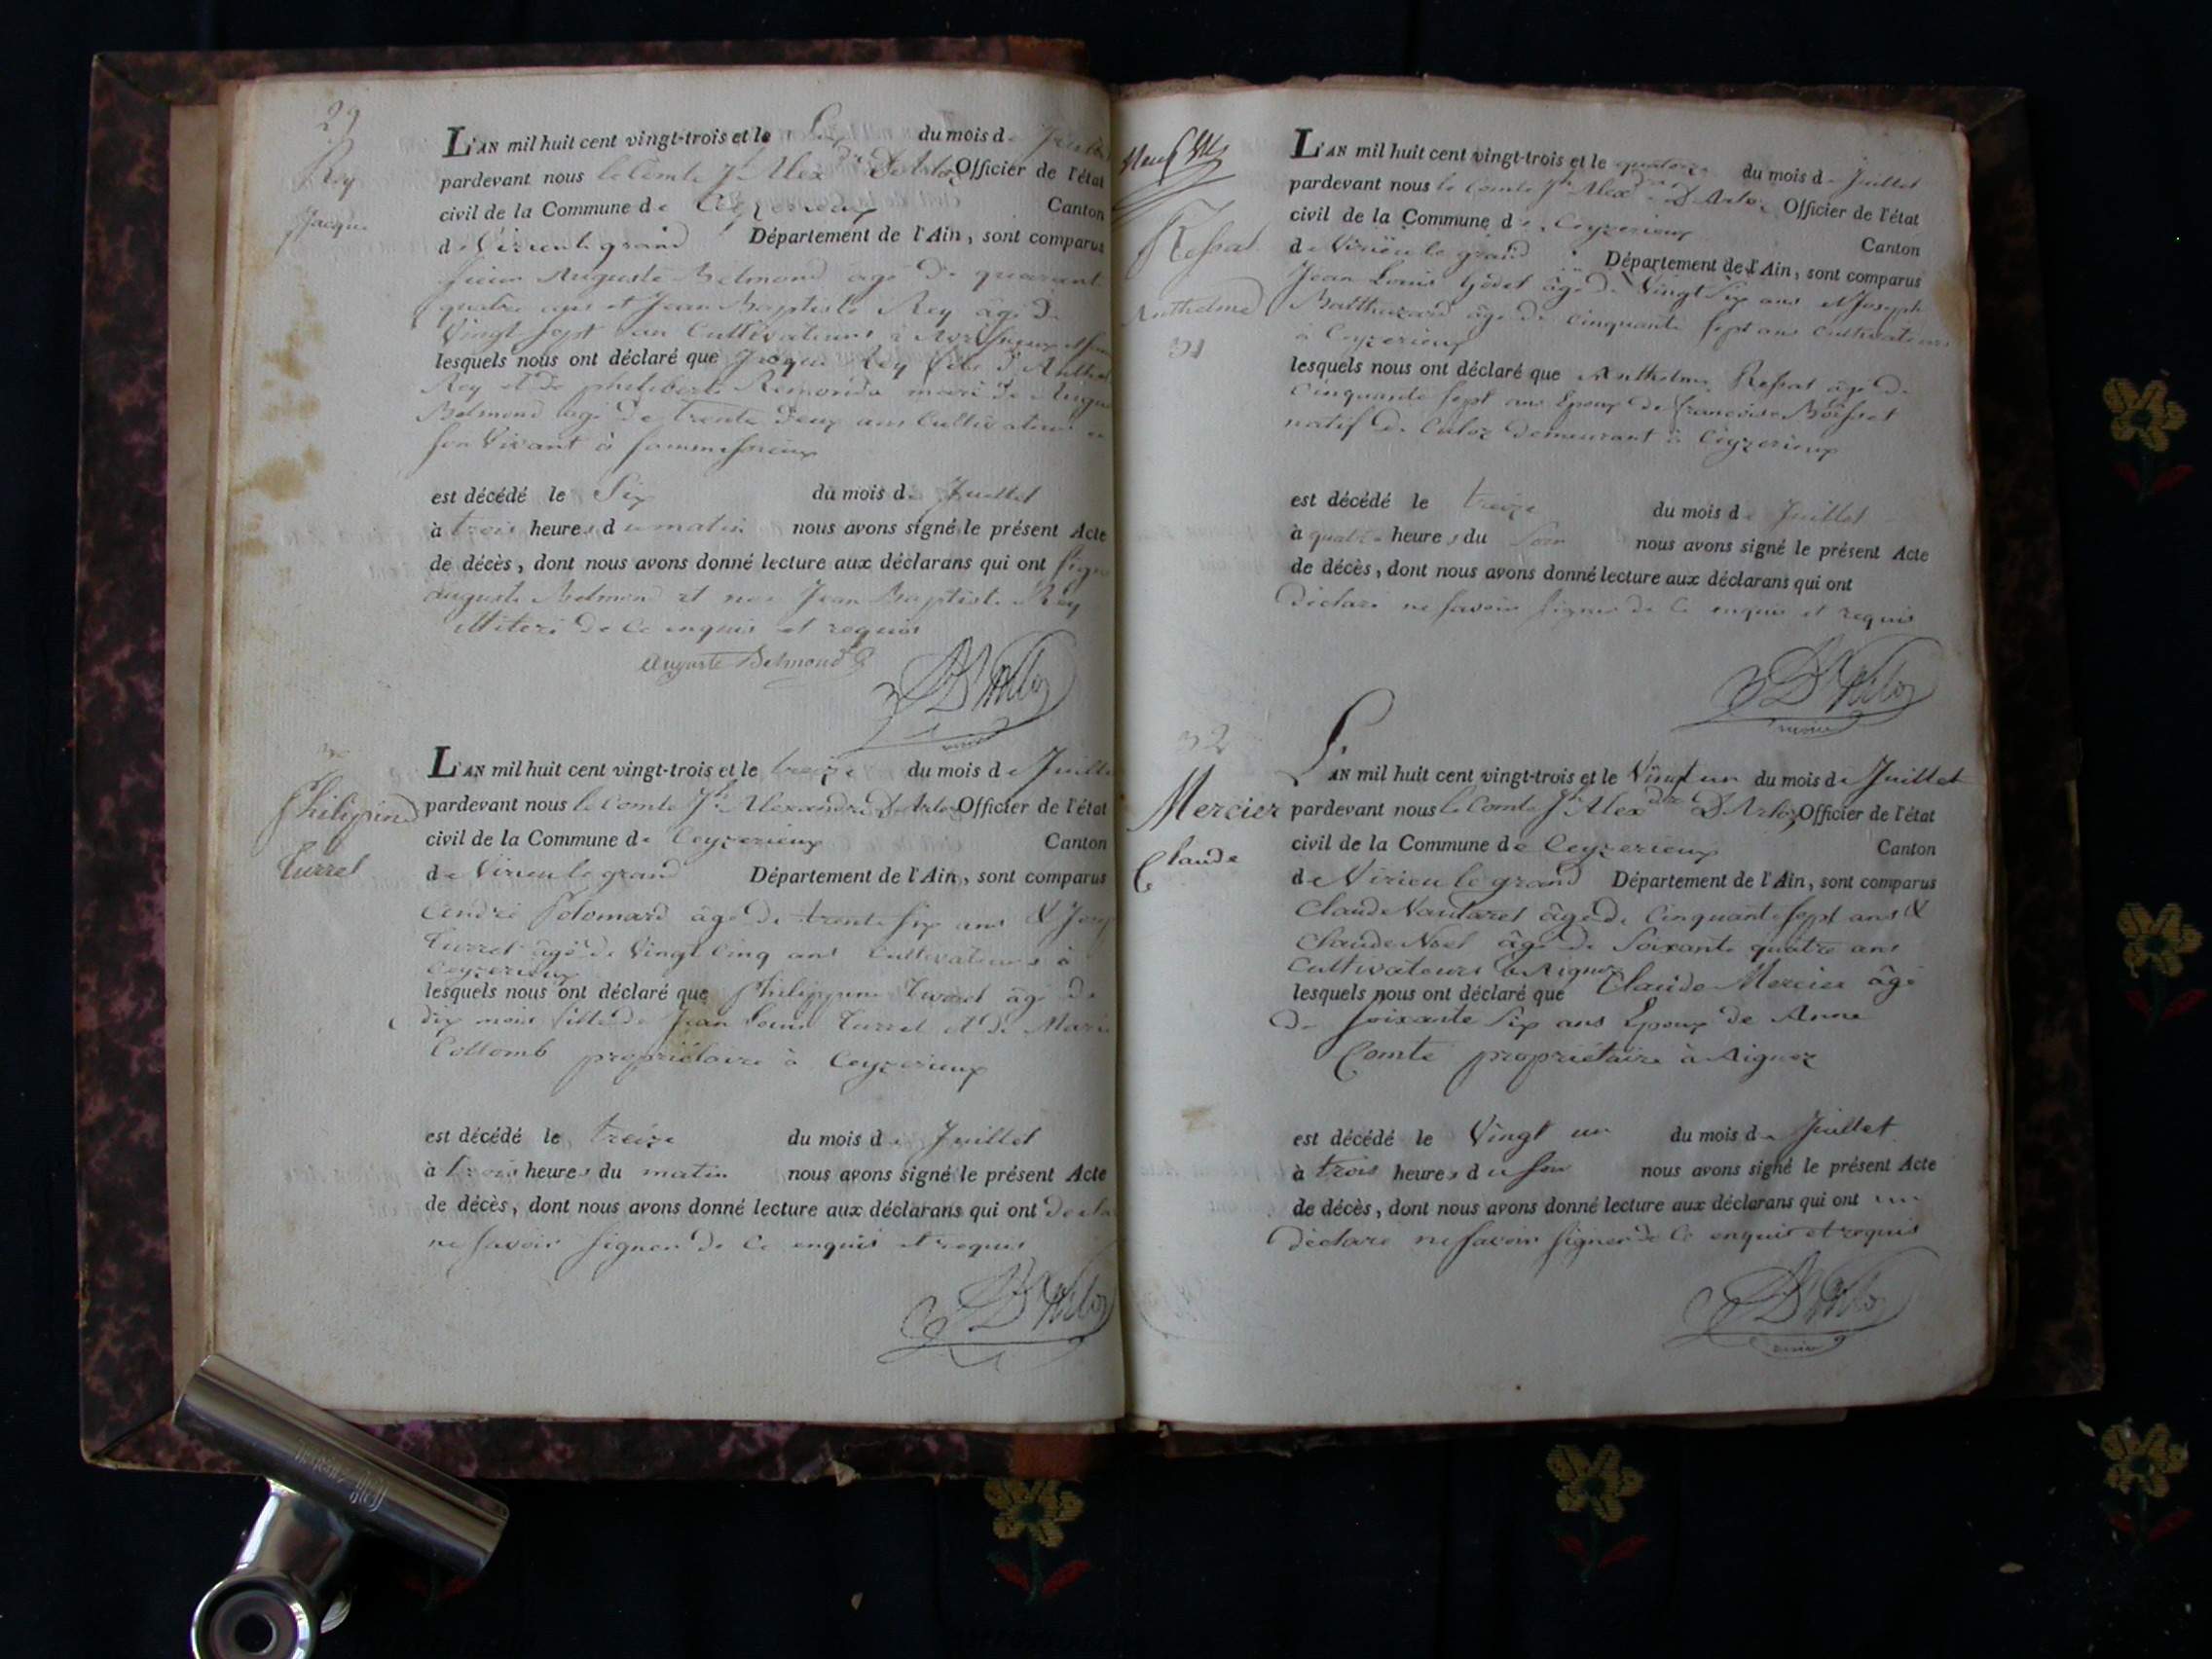 29
Rey
Jacque
L'AN mil huit cent vingt-trois et le Six du mois de Juillet
pardevant nous le Comte Jh Alexdre D'Arloz Officier de l'état
civil de la Commune de Ceyzerieux Canton
de Virieu le grand Département de l'Ain, sont comparus
Auguste Belmond âgé de quarant
quatre ans et Jean Baptiste Rey âgé de
Vingt sept ans Cultivateurs à
lesquels nous ont déclaré que Jacque Rey fils d'Anthel
Rey et de philiberte Remonde mari de Augu
Belmond âgé de trente deux ans Cultivateur en
son Vivant à
est décédé le Six du mois de Juillet
à trois heures du matin nous avons signé le présent Acte
de décès, dont nous avons donné lecture aux déclarans qui ont signé
Auguste Belmond et non Jean Baptiste Rey
illiteré de ce enquis et requis
Auguste Belmond
D'Arloz
30
Philipine
Turrel
L'AN mil huit cent vingt-trois et le treize du mois de Juillet
pardevant nous le Comte Jh Alexandre D'Arloz Officier de l'état
civil de la Commune de Ceyzerieux Canton
de Virieu le grand Département de l'Ain, sont comparus
André Polomard âgé de trente six ans & Josep
Turrel âgé de Vingt Cinq ans Cultivateurs à
Ceyzerieux
lesquels nous ont déclaré que Philippine Turrel âgé de
dix mois fille de Jean Louis Turrel et de Marie
Collomb propriétaire à Ceyzerieux
est décédé le treize du mois de Juillet
à trois heures du matin nous avons signé le présent Acte
de décès, dont nous avons donné lecture aux déclarans qui ont decla
ne savoir signer de ce enquis et requis
D'Arloz
Neuf
Ressat
Anthelme
31
L'AN mil huit cent vingt-trois et le quatorze du mois de Juillet
pardevant nous le Comte Jh Alexdre D'Arloz Officier de l'état
civil de la Commune de Ceyzerieux Canton
de Virieu le grand Département de l'Ain, sont comparus
Jean Louis Godet âgé de Vingt Six ans et Joseph
Balthazard âgé de cinquante sept ans cultivateurs
à Ceyzerieux
lesquels nous ont déclaré que Anthelme Ressat âgé de
Cinquante sept ans Epoux de françoise Boisset
natif de Culoz demeurant à Ceyzerieux
est décédé le treize du mois de Juillet
à quatre heures du Soir nous avons signé le présent Acte
de décès, dont nous avons donné lecture aux déclarans qui ont
déclaré ne savoir signer de Ce enquis et requis
D'Arloz
32
Mercier
Claude
L'AN mil huit cent vingt-trois et le Vingt un du mois de Juillet
pardevant nous le Comte Jh Alexdre D'Arloz Officier de l'état
civil de la Commune de Ceyzerieux Canton
de Virieu le grand Département de l'Ain, sont comparus
Claude Vautaret âgé de Cinquante sept ans &
Claude Noel âgé de Soixante quatre ans
Cultivateurs à Aignoz
lesquels nous ont déclaré que Claude Mercier âgé
de soixante Six ans Epoux de Anne
Comte propriétaire à Aignoz
est décédé le Vingt un du mois de Juillet
à trois heures du soir nous avons signé le présent Acte
de décès, dont nous avons donné lecture aux déclarans qui ont
déclaré ne savoir signer de Ce enquis et requis
D'Arloz